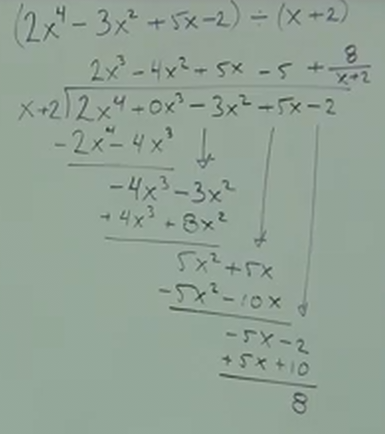 (2x⁴ - 3x² + 5x - 2) ÷ (x + 2)
2x³ - 4x² + 5x - 5 + 8/(x+2)
x+2 | 2x⁴ + 0x³ - 3x² + 5x - 2
-2x⁴ - 4x³
-4x³ - 3x²
+4x³ + 8x²
5x² + 5x
-5x² - 10x
-5x - 2
+5x + 10
8